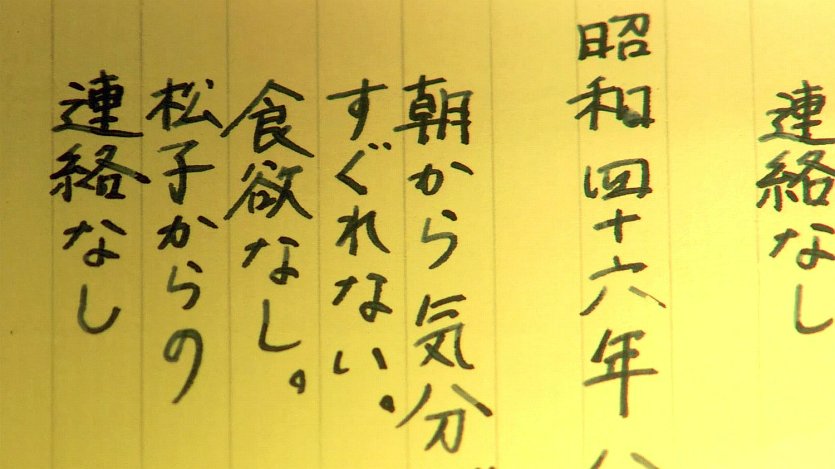 連絡なし
昭和四十六年八
朝から気分
すぐれない。
食欲なし。
松子からの
連絡なし